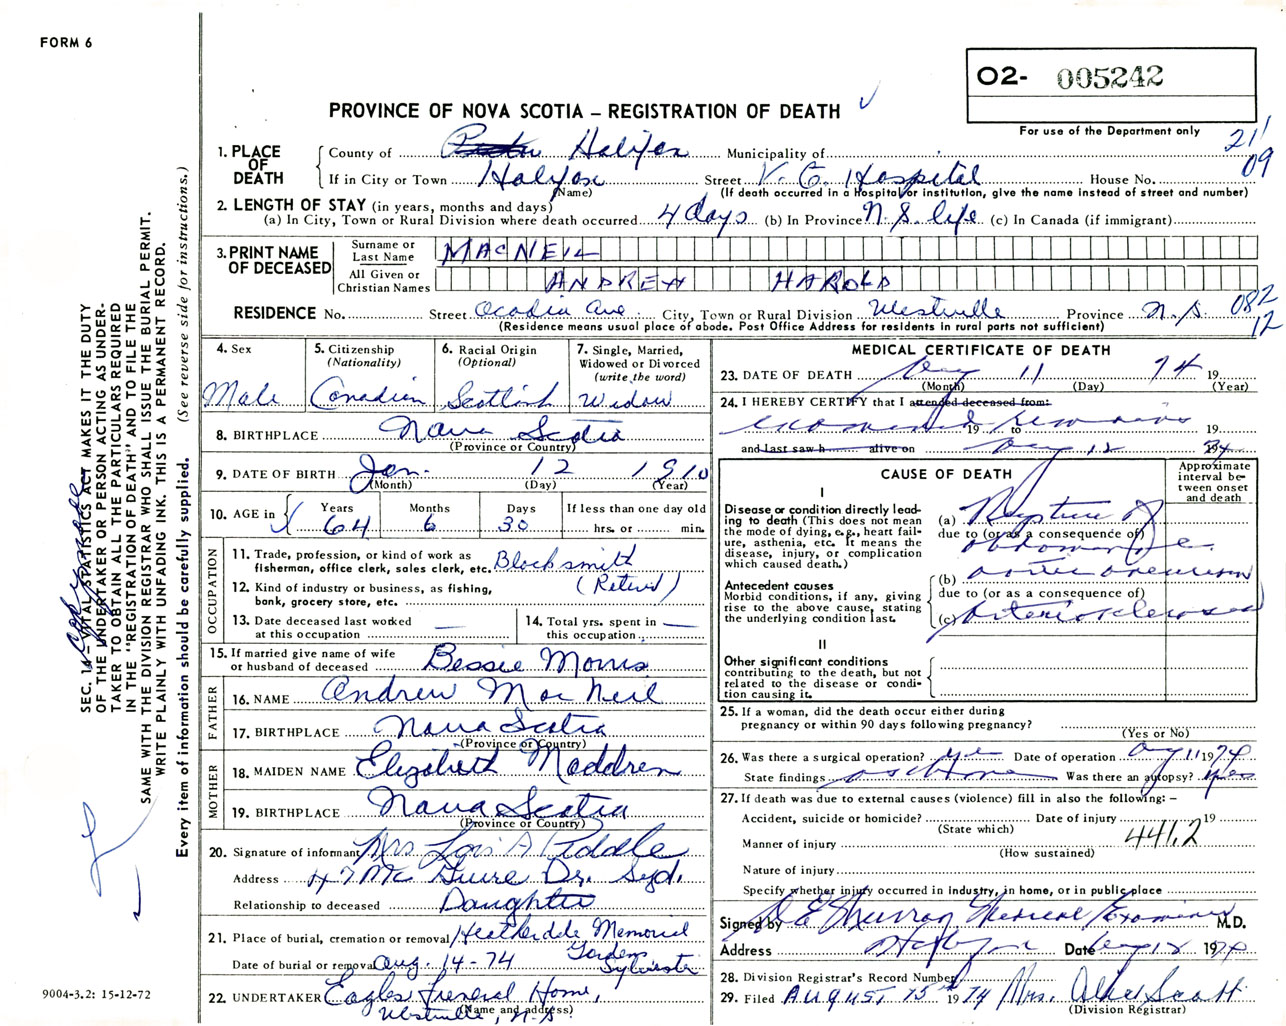 FORM 6
O2- 005242
PROVINCE OF NOVA SCOTIA – REGISTRATION OF DEATH
For use of the Department only
21/
09
1. PLACE OF DEATH
County of Halifax Municipality of
If in City or Town Halifax Street V. G. Hospital House No.
(Name) (If death occurred in a hospital or institution, give the name instead of street and number)
2. LENGTH OF STAY (in years, months and days)
(a) In City, Town or Rural Division where death occurred 4 days (b) In Province N.S. life (c) In Canada (if immigrant)
3. PRINT NAME OF DECEASED
Surname or Last Name MACNEIL
All Given or Christian Names ANDREW HAROLD
RESIDENCE No. Street Acadia Ave City, Town or Rural Division Westville Province N.S. 082
12
(Residence means usual place of abode. Post Office Address for residents in rural parts not sufficient)
4. Sex
Male
5. Citizenship
(Nationality)
Canadian
6. Racial Origin
(Optional)
Scottish
7. Single, Married,
Widowed or Divorced
(write the word)
Widow
8. BIRTHPLACE Nova Scotia
(Province or Country)
9. DATE OF BIRTH Jan. 12 1910
(Month) (Day) (Year)
10. AGE in Years Months Days If less than one day old
64 6 30 hrs. or min.
OCCUPATION
11. Trade, profession, or kind of work as
fisherman, office clerk, sales clerk, etc. Blacksmith
12. Kind of industry or business, as fishing, (Retired)
bank, grocery store, etc.
13. Date deceased last worked
at this occupation
14. Total yrs. spent in
this occupation
15. If married give name of wife
or husband of deceased Bessie Morris
FATHER
16. NAME Andrew Mac Neil
17. BIRTHPLACE Nova Scotia
(Province or Country)
MOTHER
18. MAIDEN NAME Elizabeth Maddren
19. BIRTHPLACE Nova Scotia
(Province or Country)
20. Signature of informant Mrs Lois A
Address 47 Mc Guire Dr. Syd.
Relationship to deceased Daughter
21. Place of burial, cremation or removal Heatherdale Memorial
Garden
Date of burial or removal Aug. 14-74 Sylvester
22. UNDERTAKER Eagles Funeral Home,
(Name and address)
Westville, N.S.
MEDICAL CERTIFICATE OF DEATH
23. DATE OF DEATH Aug 11 74 19
(Month) (Day) (Year)
24. I HEREBY CERTIFY that I attended deceased from:
examined 19 to remains 19
and last saw h alive on Aug 12 74
CAUSE OF DEATH
Approximate
interval be-
tween onset
and death
I
Disease or condition directly lead-
ing to death (This does not mean
the mode of dying, e.g., heart fail-
ure, asthenia, etc. It means the
disease, injury, or complication
which caused death.)
(a) Rupture of
due to (or as a consequence of)
abdominal
Antecedent causes
Morbid conditions, if any, giving
rise to the above cause, stating
the underlying condition last.
(b) aortic aneurism
due to (or as a consequence of)
(c) Arteriosclerosis
II
Other significant conditions
contributing to the death, but not
related to the disease or condi-
tion causing it.
25. If a woman, did the death occur either during
pregnancy or within 90 days following pregnancy?
(Yes or No)
26. Was there a surgical operation? yes Date of operation Aug 11 1974
State findings as above Was there an autopsy? yes
27. If death was due to external causes (violence) fill in also the following: –
Accident, suicide or homicide? Date of injury 19
(State which)
Manner of injury 441.2
(How sustained)
Nature of injury
Specify whether injury occurred in industry, in home, or in public place
Signed by Murray Medical Examiner M.D.
Address Halifax Date Aug 12 1974
28. Division Registrar's Record Number
29. Filed AUGUST 15 1974 Mrs. Scott
(Division Registrar)
SEC. 14 – VITAL STATISTICS ACT MAKES IT THE DUTY
OF THE UNDERTAKER OR PERSON ACTING AS UNDER-
TAKER TO OBTAIN ALL THE PARTICULARS REQUIRED
IN THE "REGISTRATION OF DEATH" AND TO FILE THE
SAME WITH THE DIVISION REGISTRAR WHO SHALL ISSUE THE BURIAL PERMIT.
WRITE PLAINLY WITH UNFADING INK. THIS IS A PERMANENT RECORD.
Every item of information should be carefully supplied. (See reverse side for instructions.)
9004-3.2: 15-12-72